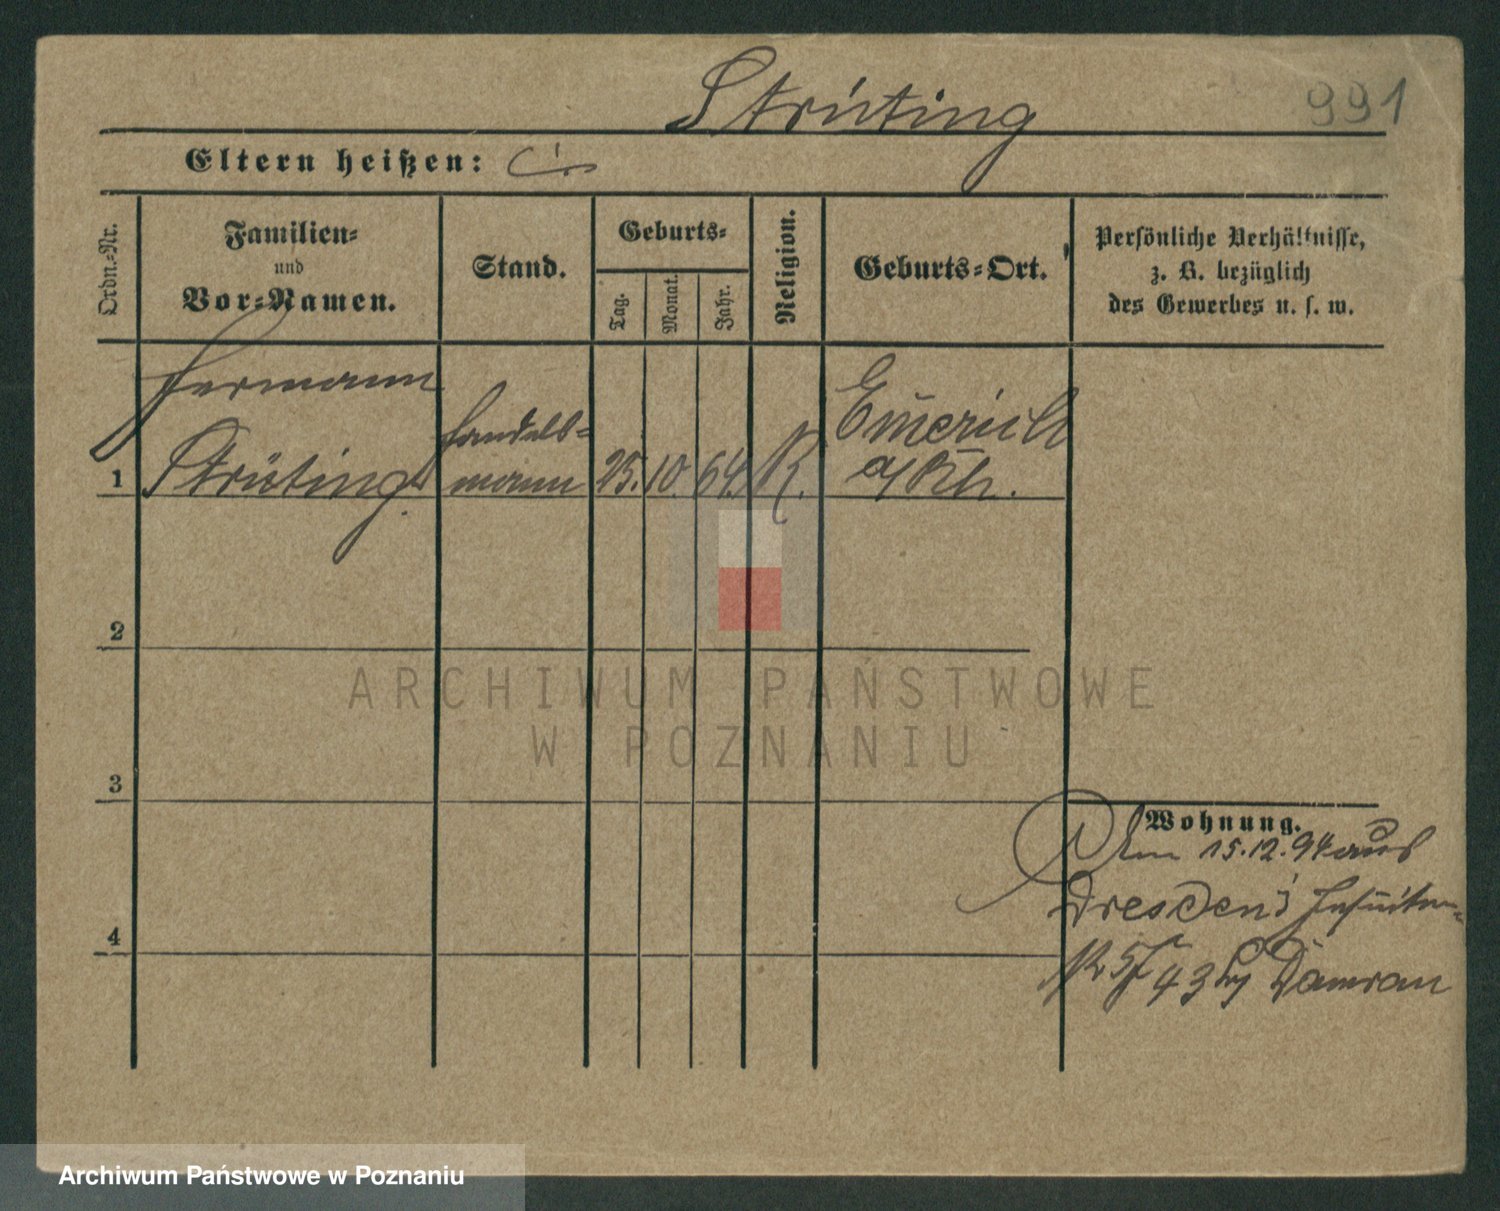 Strüting
991
Eltern heißen:
Ordn.-Nr.
Familien-
und
Vor-Namen.
Stand.
Geburts-
Tag.
Monat.
Jahr.
Religion.
Geburts-Ort.
Persönliche Verhältnisse,
z. B. bezüglich
des Gewerbes u. s. w.
Hermann
Strüting
Handels-
mann
25. 10. 64. K.
Emerich
a/Rh.
1
2
3
4
Wohnung.
15.12.94 aus
Dresden
43 Damrau
ARCHIWUM PAŃSTWOWE
W POZNANIU
Archiwum Państwowe w Poznaniu